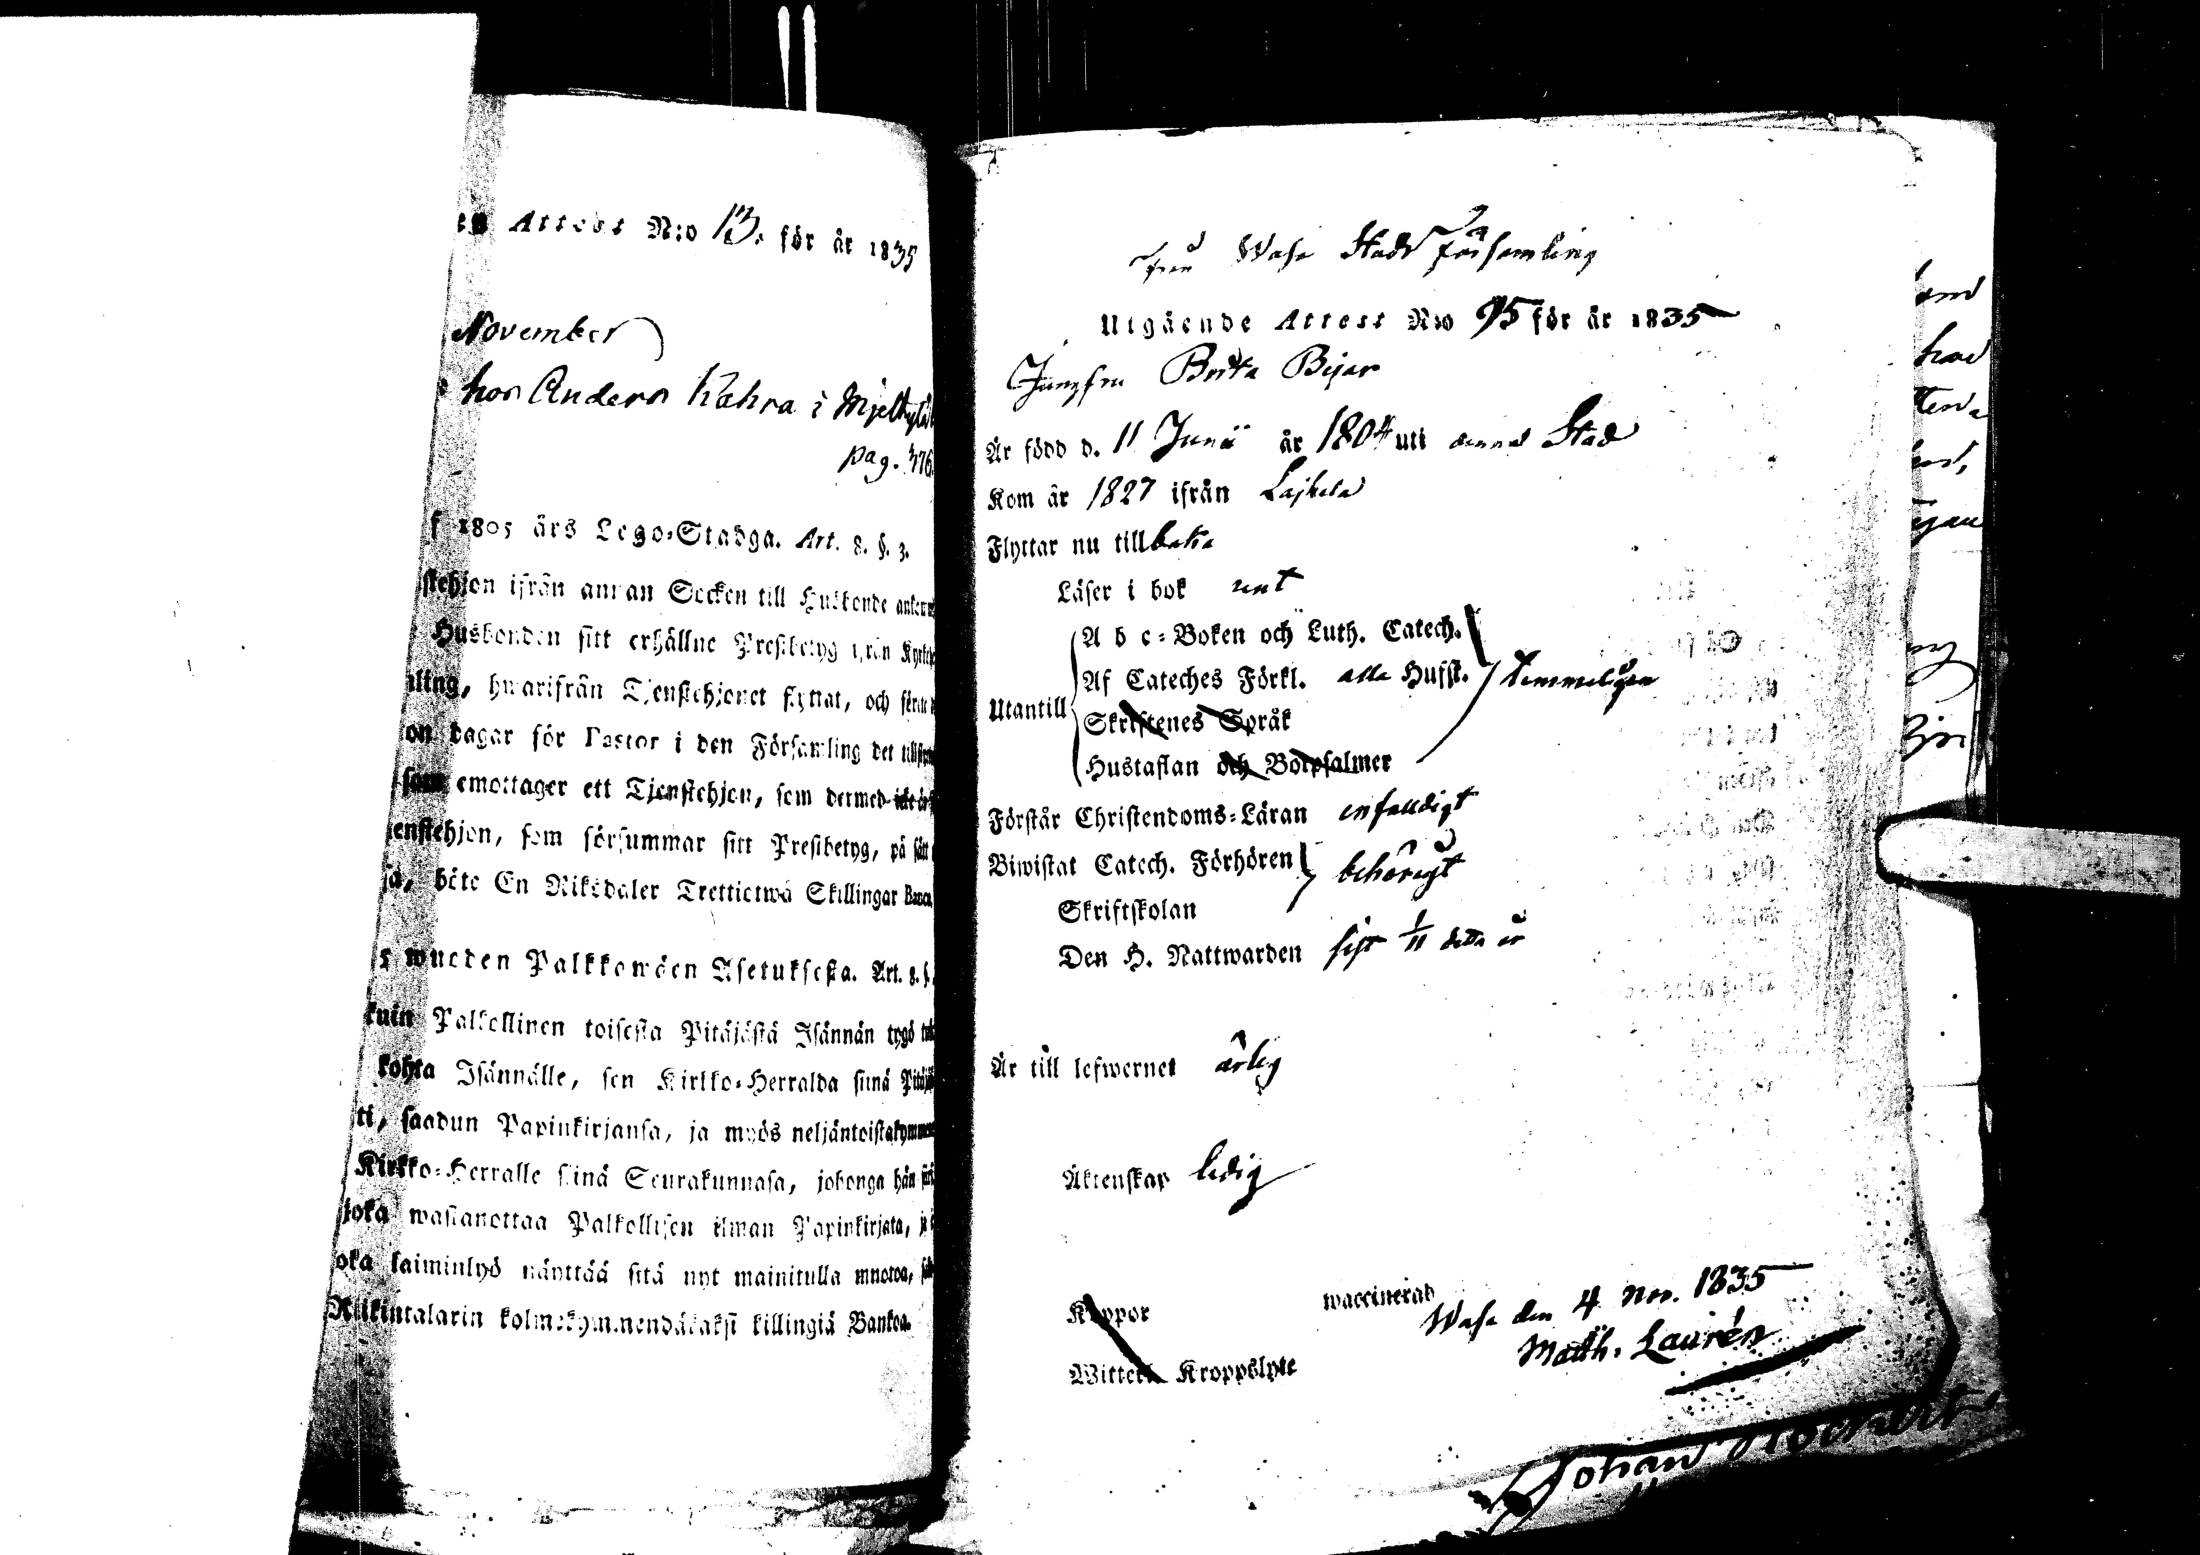 Attest N:o 13. för år 1835
November
hos Anders Kahra i Mjelby
pag. 376.
f 1805 års Lego-Stadga. Art. 8. §. 3.
stehjon ifrån annan Socken till Husbonde
Husbonden sitt erhållne Prestbetyg ifrån
ling, hwarifrån Tjenstehjonet flyttat, och
on dagar för Pastor i den Församling det
som emottager ett Tjenstehjon, som dermed icke
enstehjon, som försummar sitt Prestbetyg, på sätt
så, böte En Riksdaler Trettiotwå Skillingar Banco.
5 wuoden Palkkowäen Asetuksesta. Art. 8. §.
kuin Palkollinen toisesta Pitäjästä Isännän tygö
kohta Isännälle, sen Kirkko-Herralda siinä
ti, saadun Papinkirjansa, ja myös neljäntoistakymmen
Kirkko-Herralle siinä Seurakunnasa, johonga hän
joka wastanottaa Palkollisen ilman Papinkirjata, ja
oka laiminlyö näyttää sitä nyt mainitulla muotoa,
Riikintalarin kolmekymmendäkaksi killingiä Bankoa.
från Wasa Stads Församling
Utgående Attest N:o 95 för år 1835
Jungfru Brita Bejar
Är född d. 11 Junii år 1804 uti denna Stad
Kom år 1827 ifrån Lajhela
Flyttar nu tillbaka
Läser i bok rent
A b c-Boken och Luth. Catech.
Af Cateches Förkl. alla Hufst. temmeligen
Utantill
Skriftenes Språk
Hustaflan och Botpsalmer
Förstår Christendoms-Läran enfaldigt
Biwistat Catech. Förhören behörigt
Skriftskolan
Den H. Nattwarden sist 1/11 detta år
Är till lefwernet ärlig
Äktenskap ledig
Koppor waccinerad
Witterl. Kroppslyte
Wasa den 4 Nov. 1835
Matth. Laurén
Johan